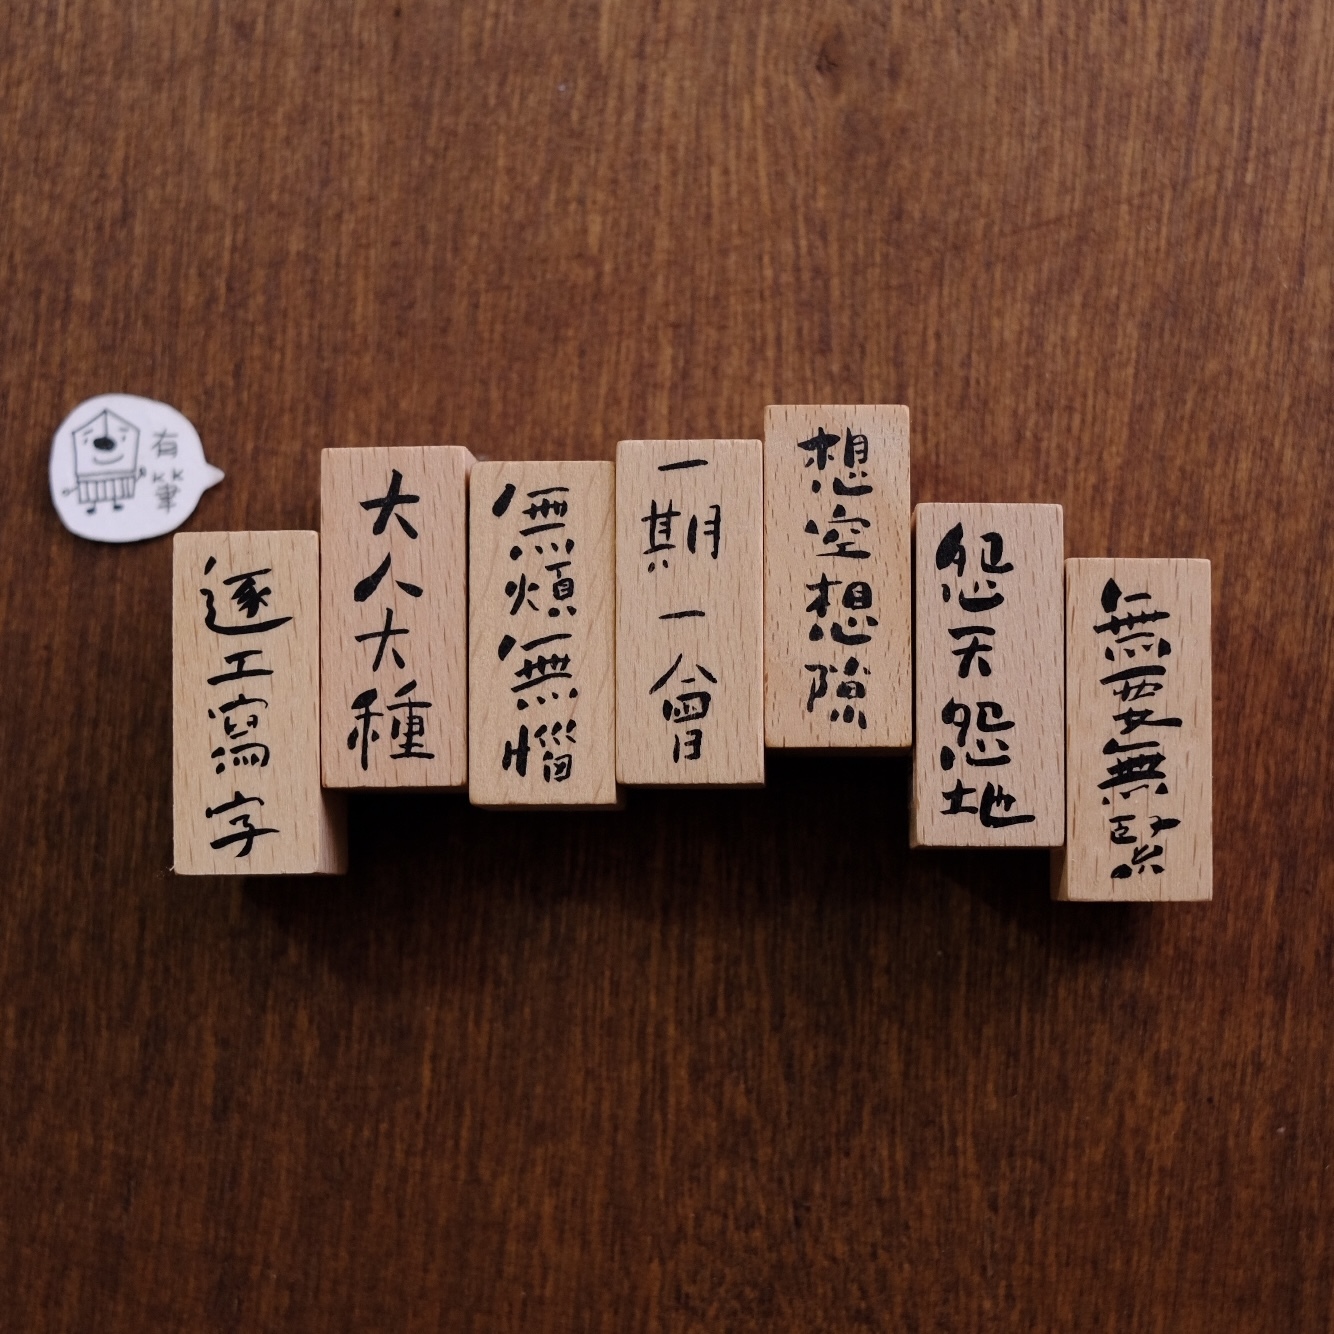 有
筆
逐工寫字
大人大種
無煩無惱
一期一會
想空想隙
怨天怨地
無要無緊